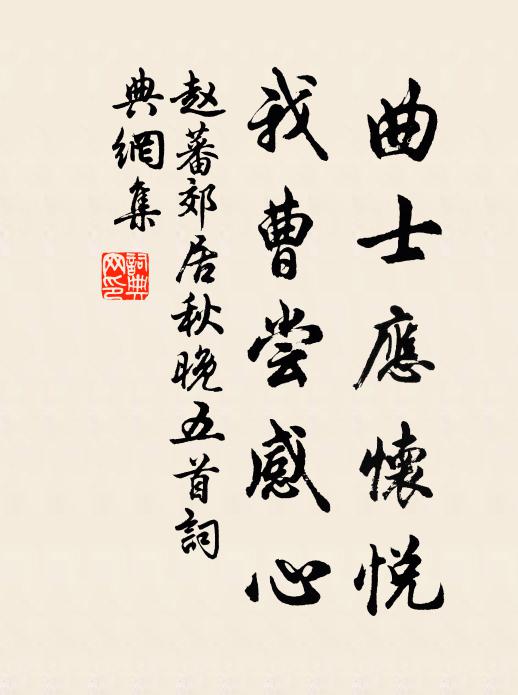 曲士應懷悅
我曹尝感心
赵蕃郊居秋晚五首詞
典網集
詞典
网印